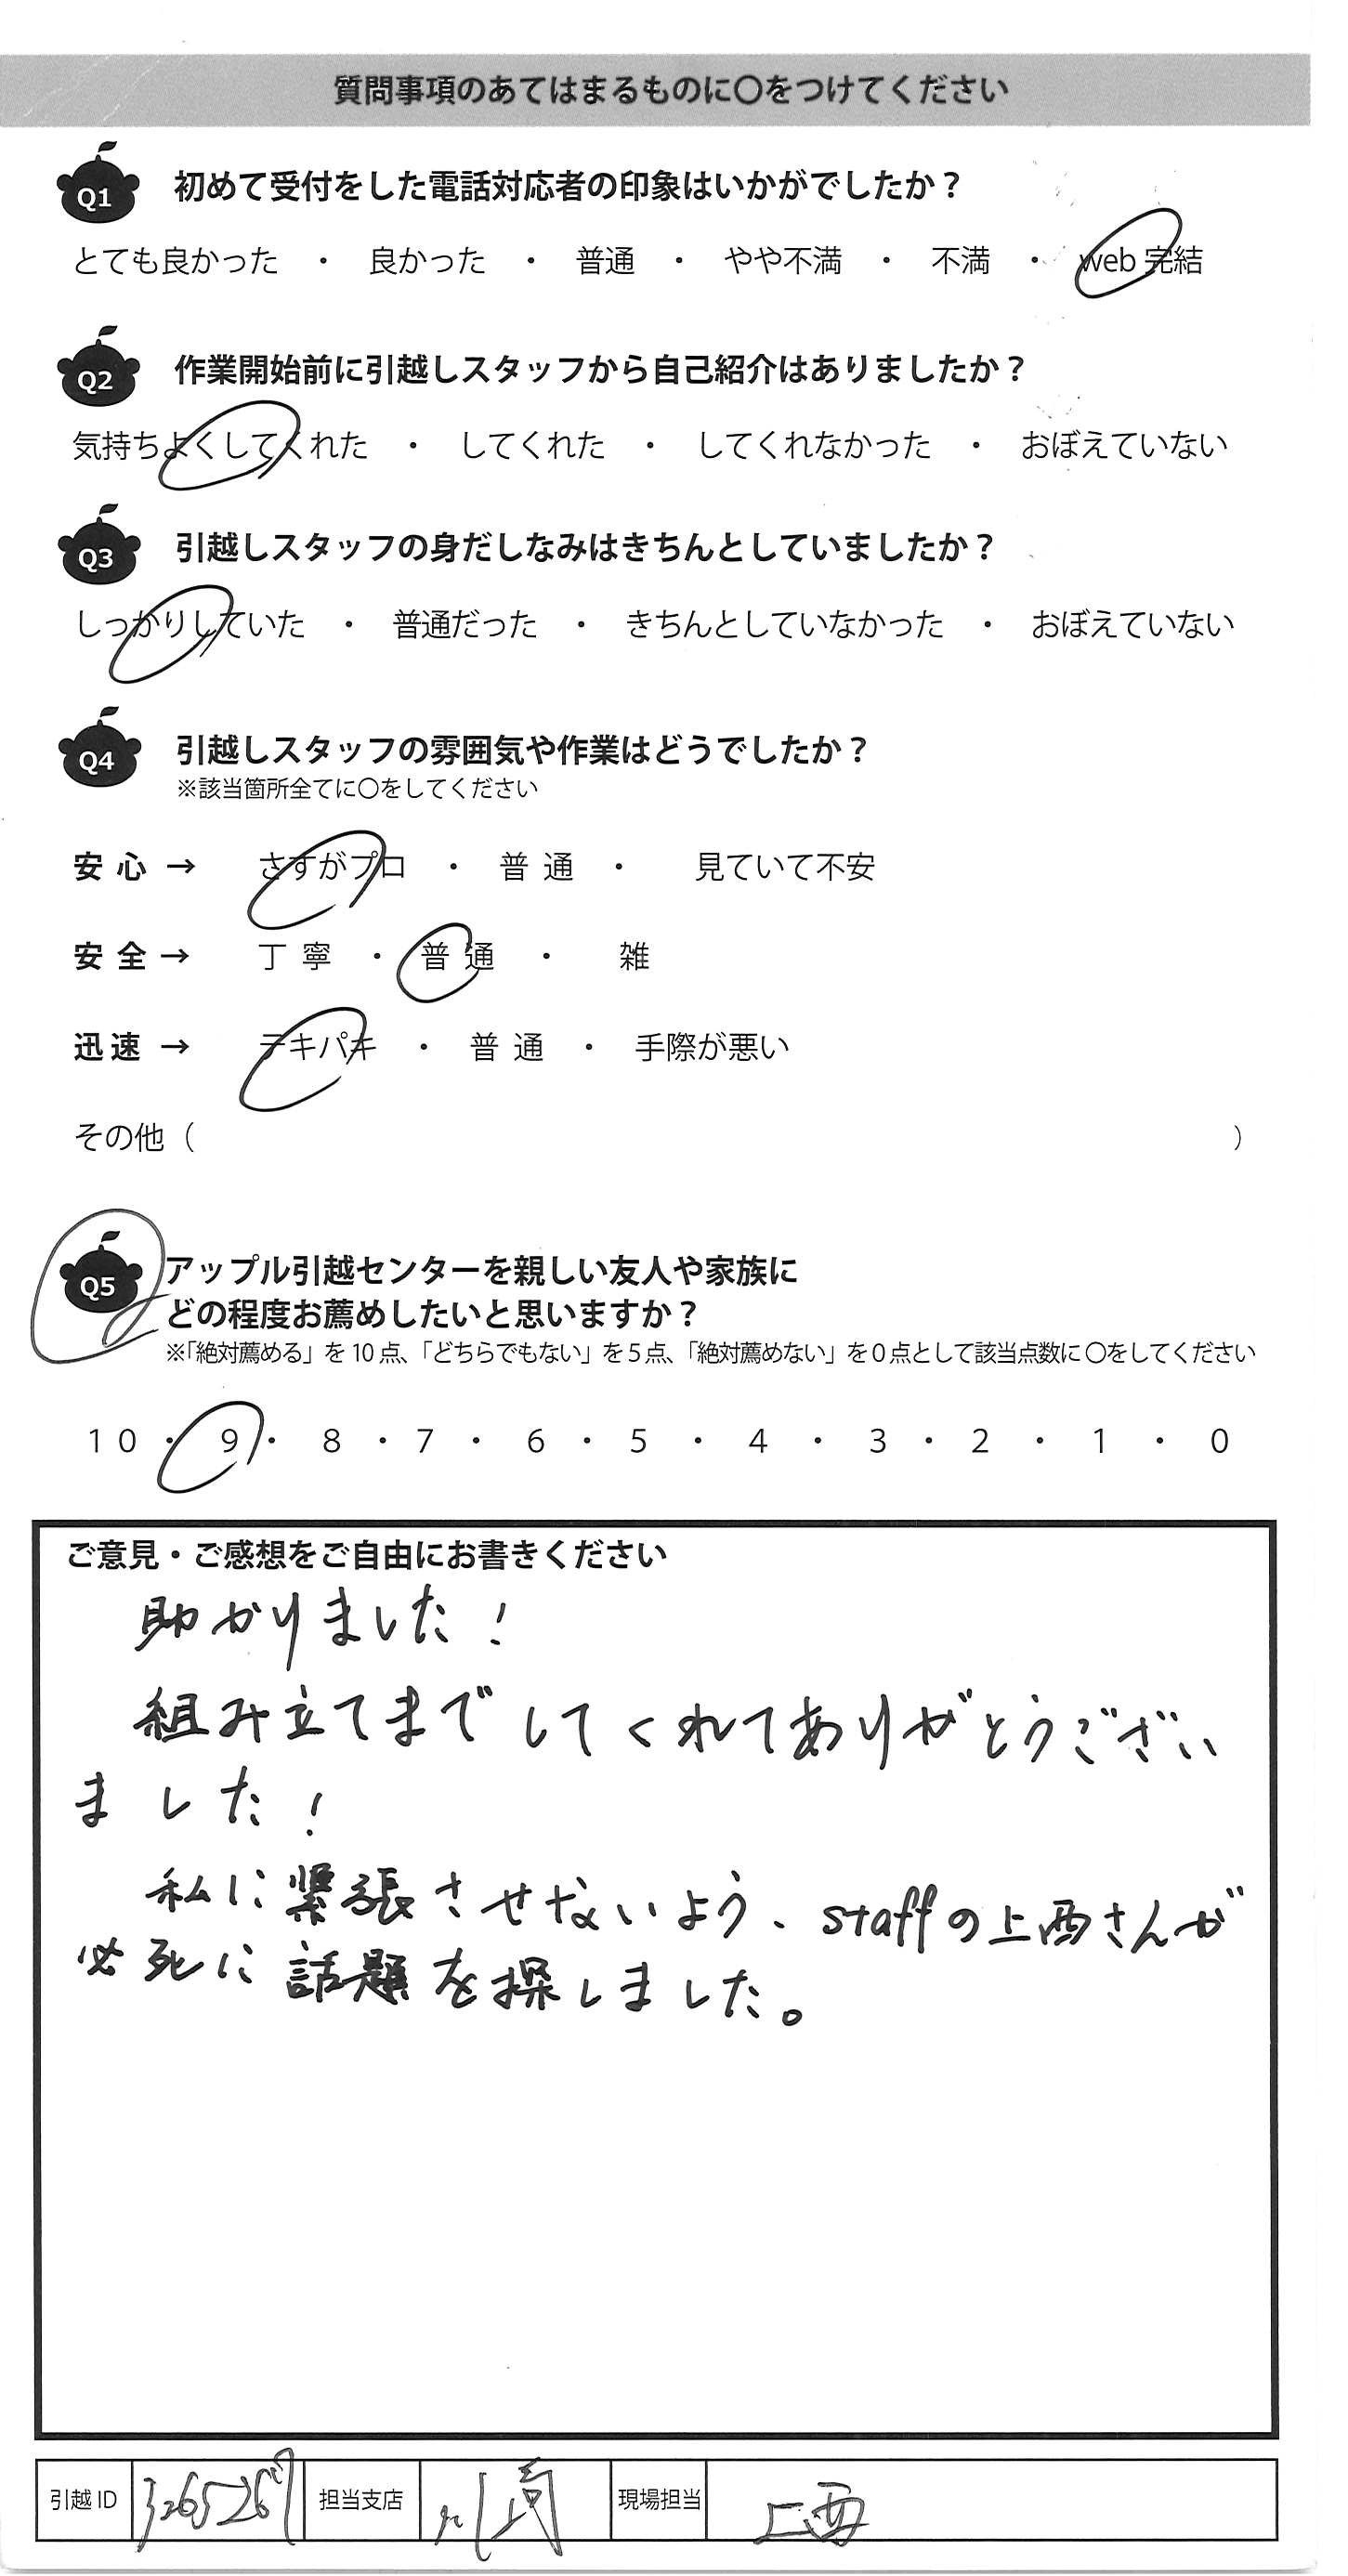 質問事項のあてはまるものに〇をつけてください
Q1 初めて受付をした電話対応者の印象はいかがでしたか？
とても良かった ・ 良かった ・ 普通 ・ やや不満 ・ 不満 ・ web 完結
Q2 作業開始前に引越しスタッフから自己紹介はありましたか？
気持ちよくしてくれた ・ してくれた ・ してくれなかった ・ おぼえていない
Q3 引越しスタッフの身だしなみはきちんとしていましたか？
しっかりしていた ・ 普通だった ・ きちんとしていなかった ・ おぼえていない
Q4 引越しスタッフの雰囲気や作業はどうでしたか？
※該当箇所全てに〇をしてください
安心 → さすがプロ ・ 普通 ・ 見ていて不安
安全 → 丁寧 ・ 普通 ・ 雑
迅速 → テキパキ ・ 普通 ・ 手際が悪い
その他（ ）
Q5 アップル引越センターを親しい友人や家族に
どの程度お薦めしたいと思いますか？
※「絶対薦める」を 10 点、「どちらでもない」を 5 点、「絶対薦めない」を 0 点として該当点数に 〇をしてください
10 ・ 9 ・ 8 ・ 7 ・ 6 ・ 5 ・ 4 ・ 3 ・ 2 ・ 1 ・ 0
ご意見・ご感想をご自由にお書きください
助かりました！
組み立てまでしてくれてありがとうござい
ました！
私に緊張させないよう、staffの上西さんが
必死に話題を探しました。
引越 ID 担当支店 川崎 現場担当 上西